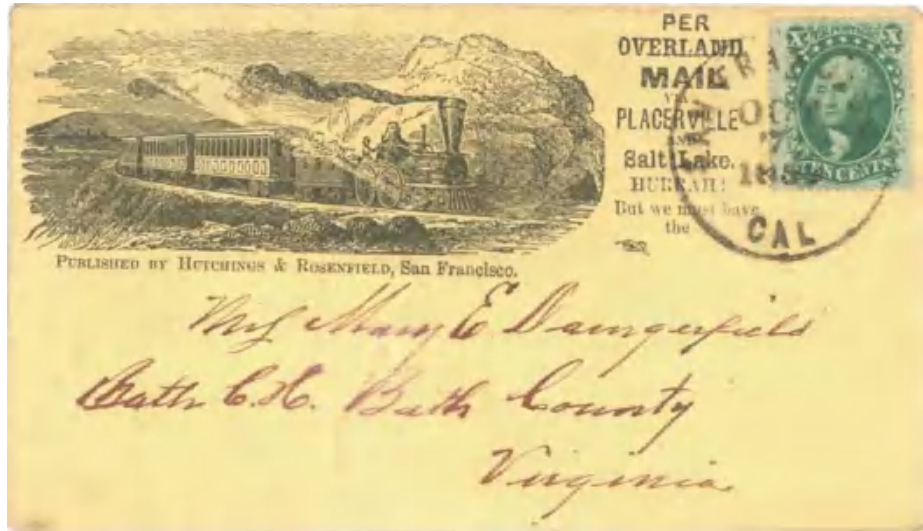 PER
OVERLAND
MAIL
VIA
PLACERVILLE
AND
Salt Lake.
HURRAH!
But we must have
the
X X
TEN CENTS
OC
CAL
PUBLISHED BY HUTCHINGS & ROSENFIELD, San Francisco.
Mrs Mary E Daingerfield
Bath C.H. Bath County
Virginia